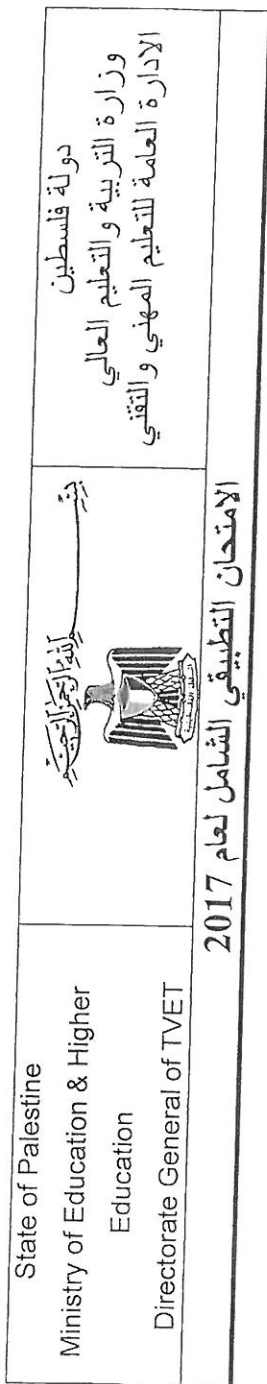 دولة فلسطين
وزارة التربية والتعليم العالي
الادارة العامة للتعليم المهني والتقني
بسم الله الرحمن الرحيم
State of Palestine
Ministry of Education & Higher
Education
Directorate General of TVET
الامتحان التطبيقي الشامل لعام 2017